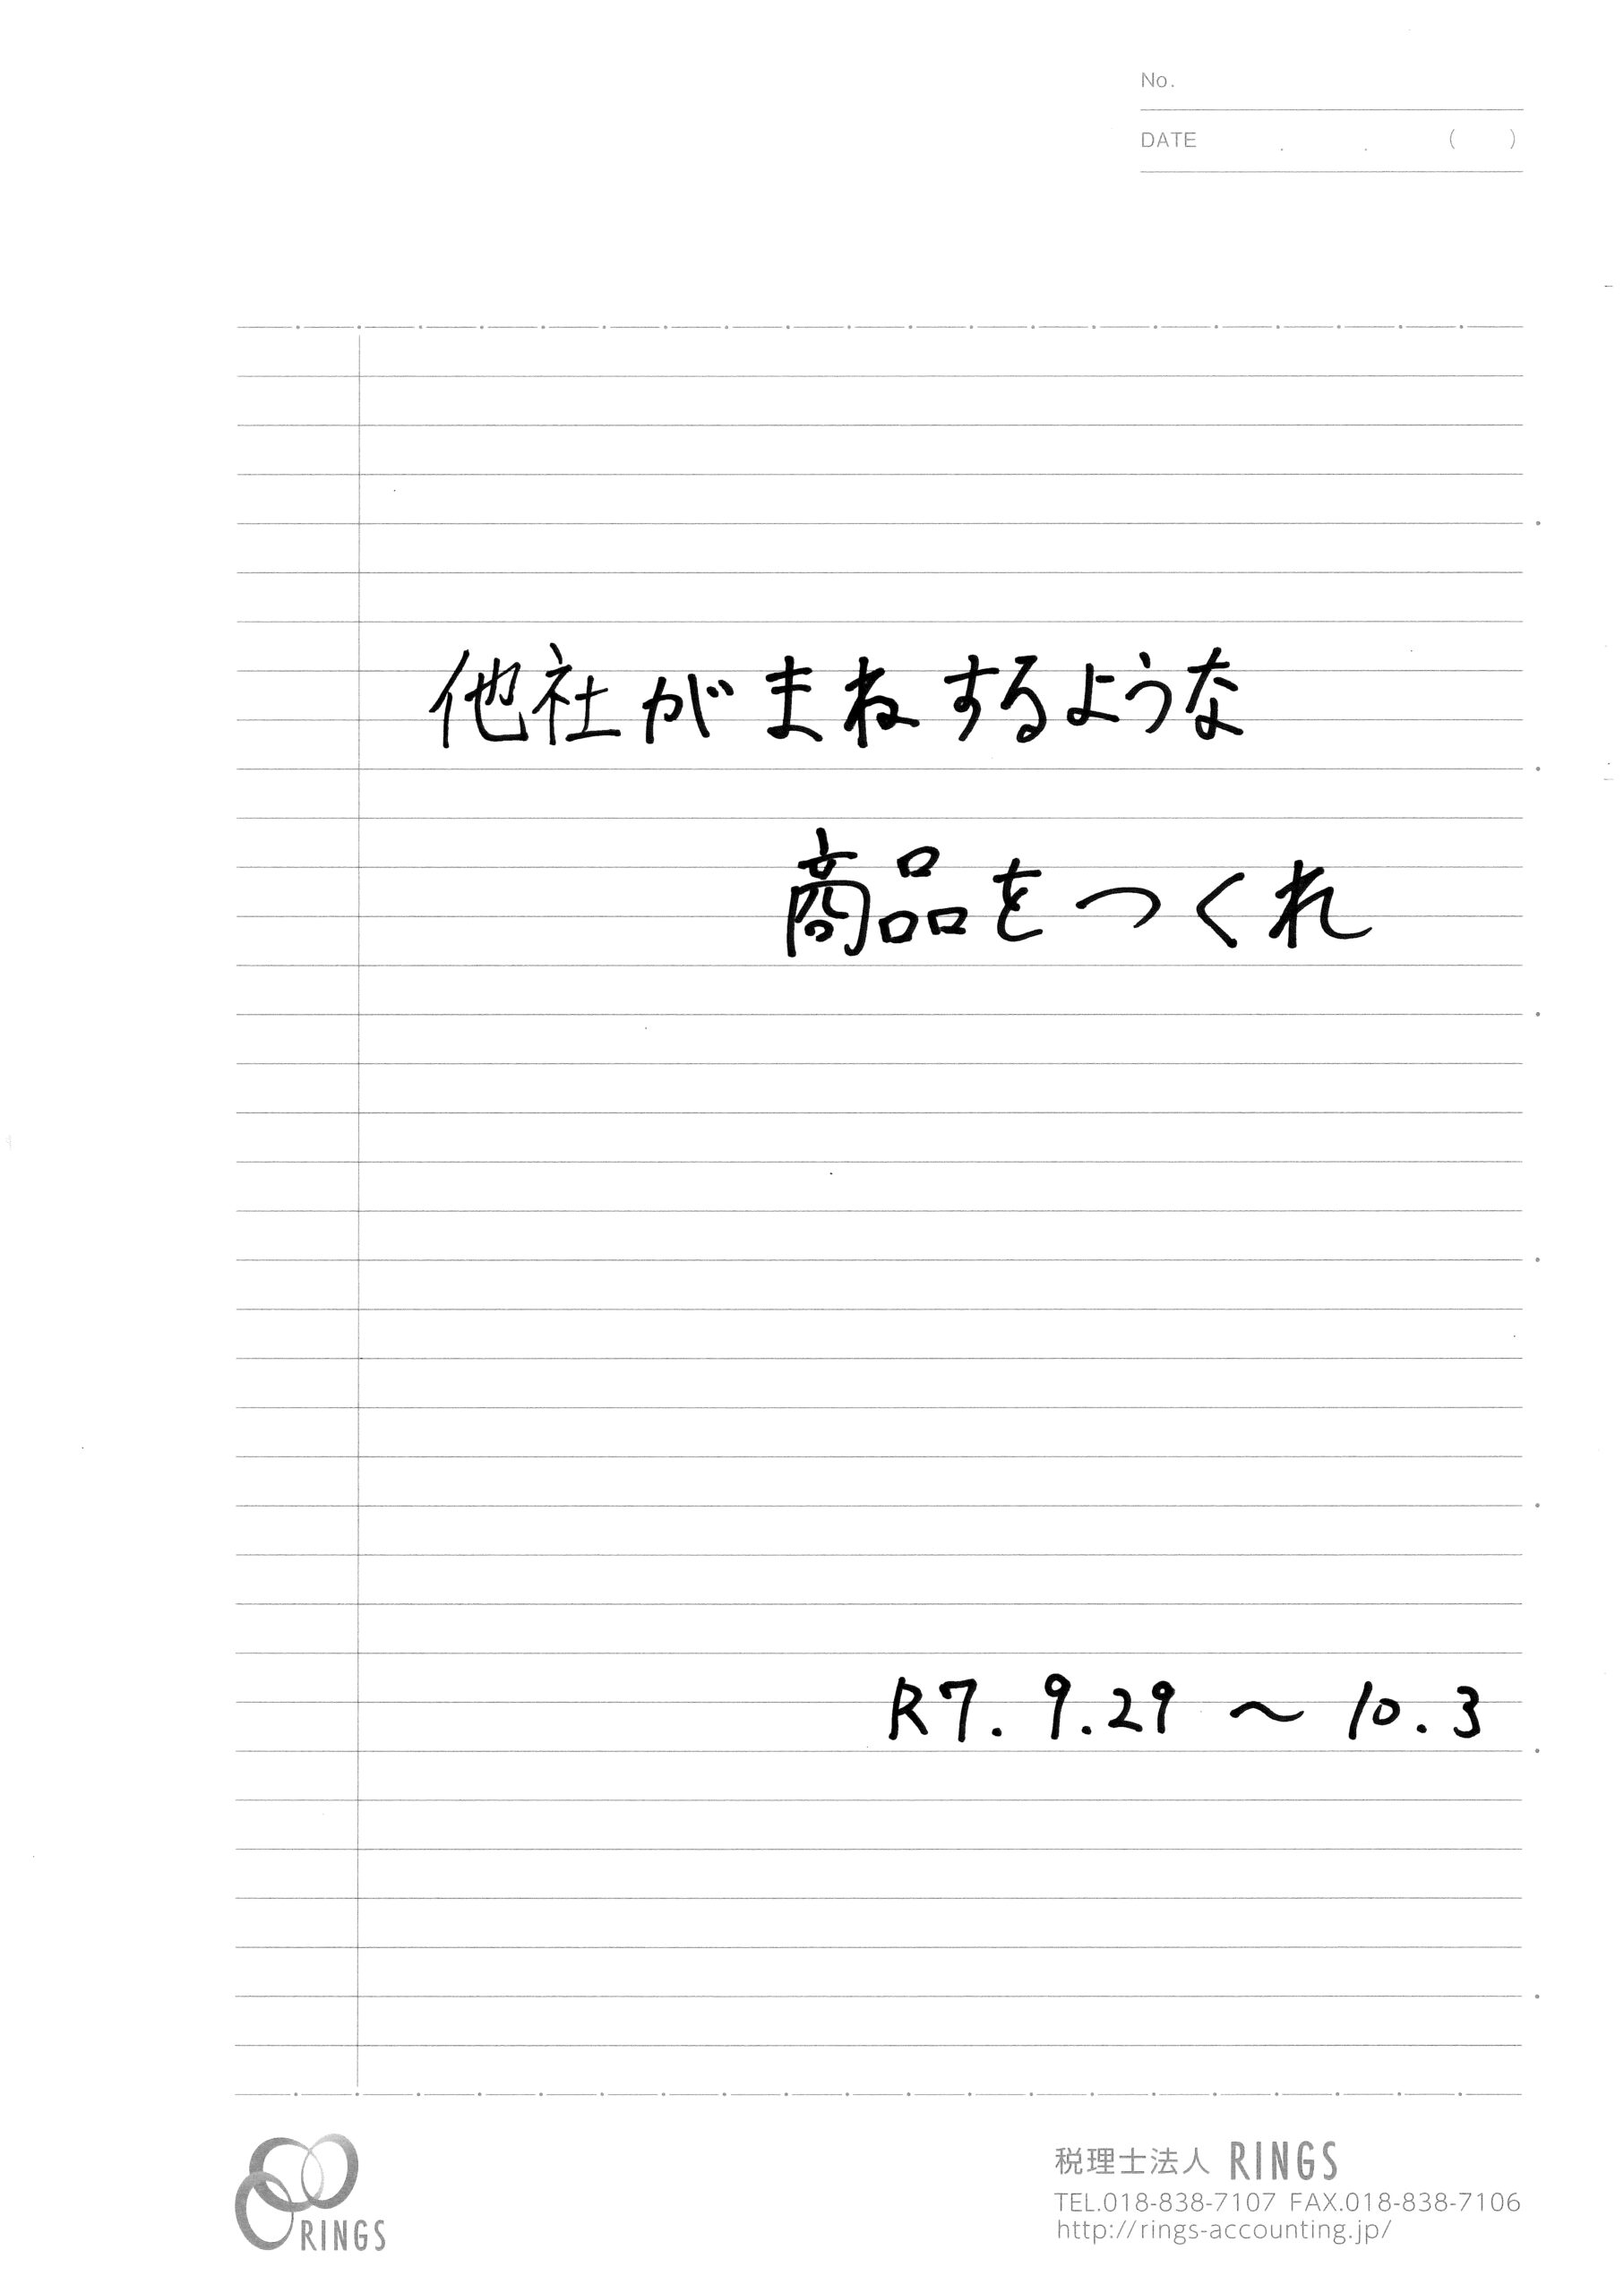 No.
DATE . . ( )
他社がまねするような
商品をつくれ
R7. 9.29 〜 10.3
RINGS
税理士法人 RINGS
TEL.018-838-7107 FAX.018-838-7106
http://rings-accounting.jp/